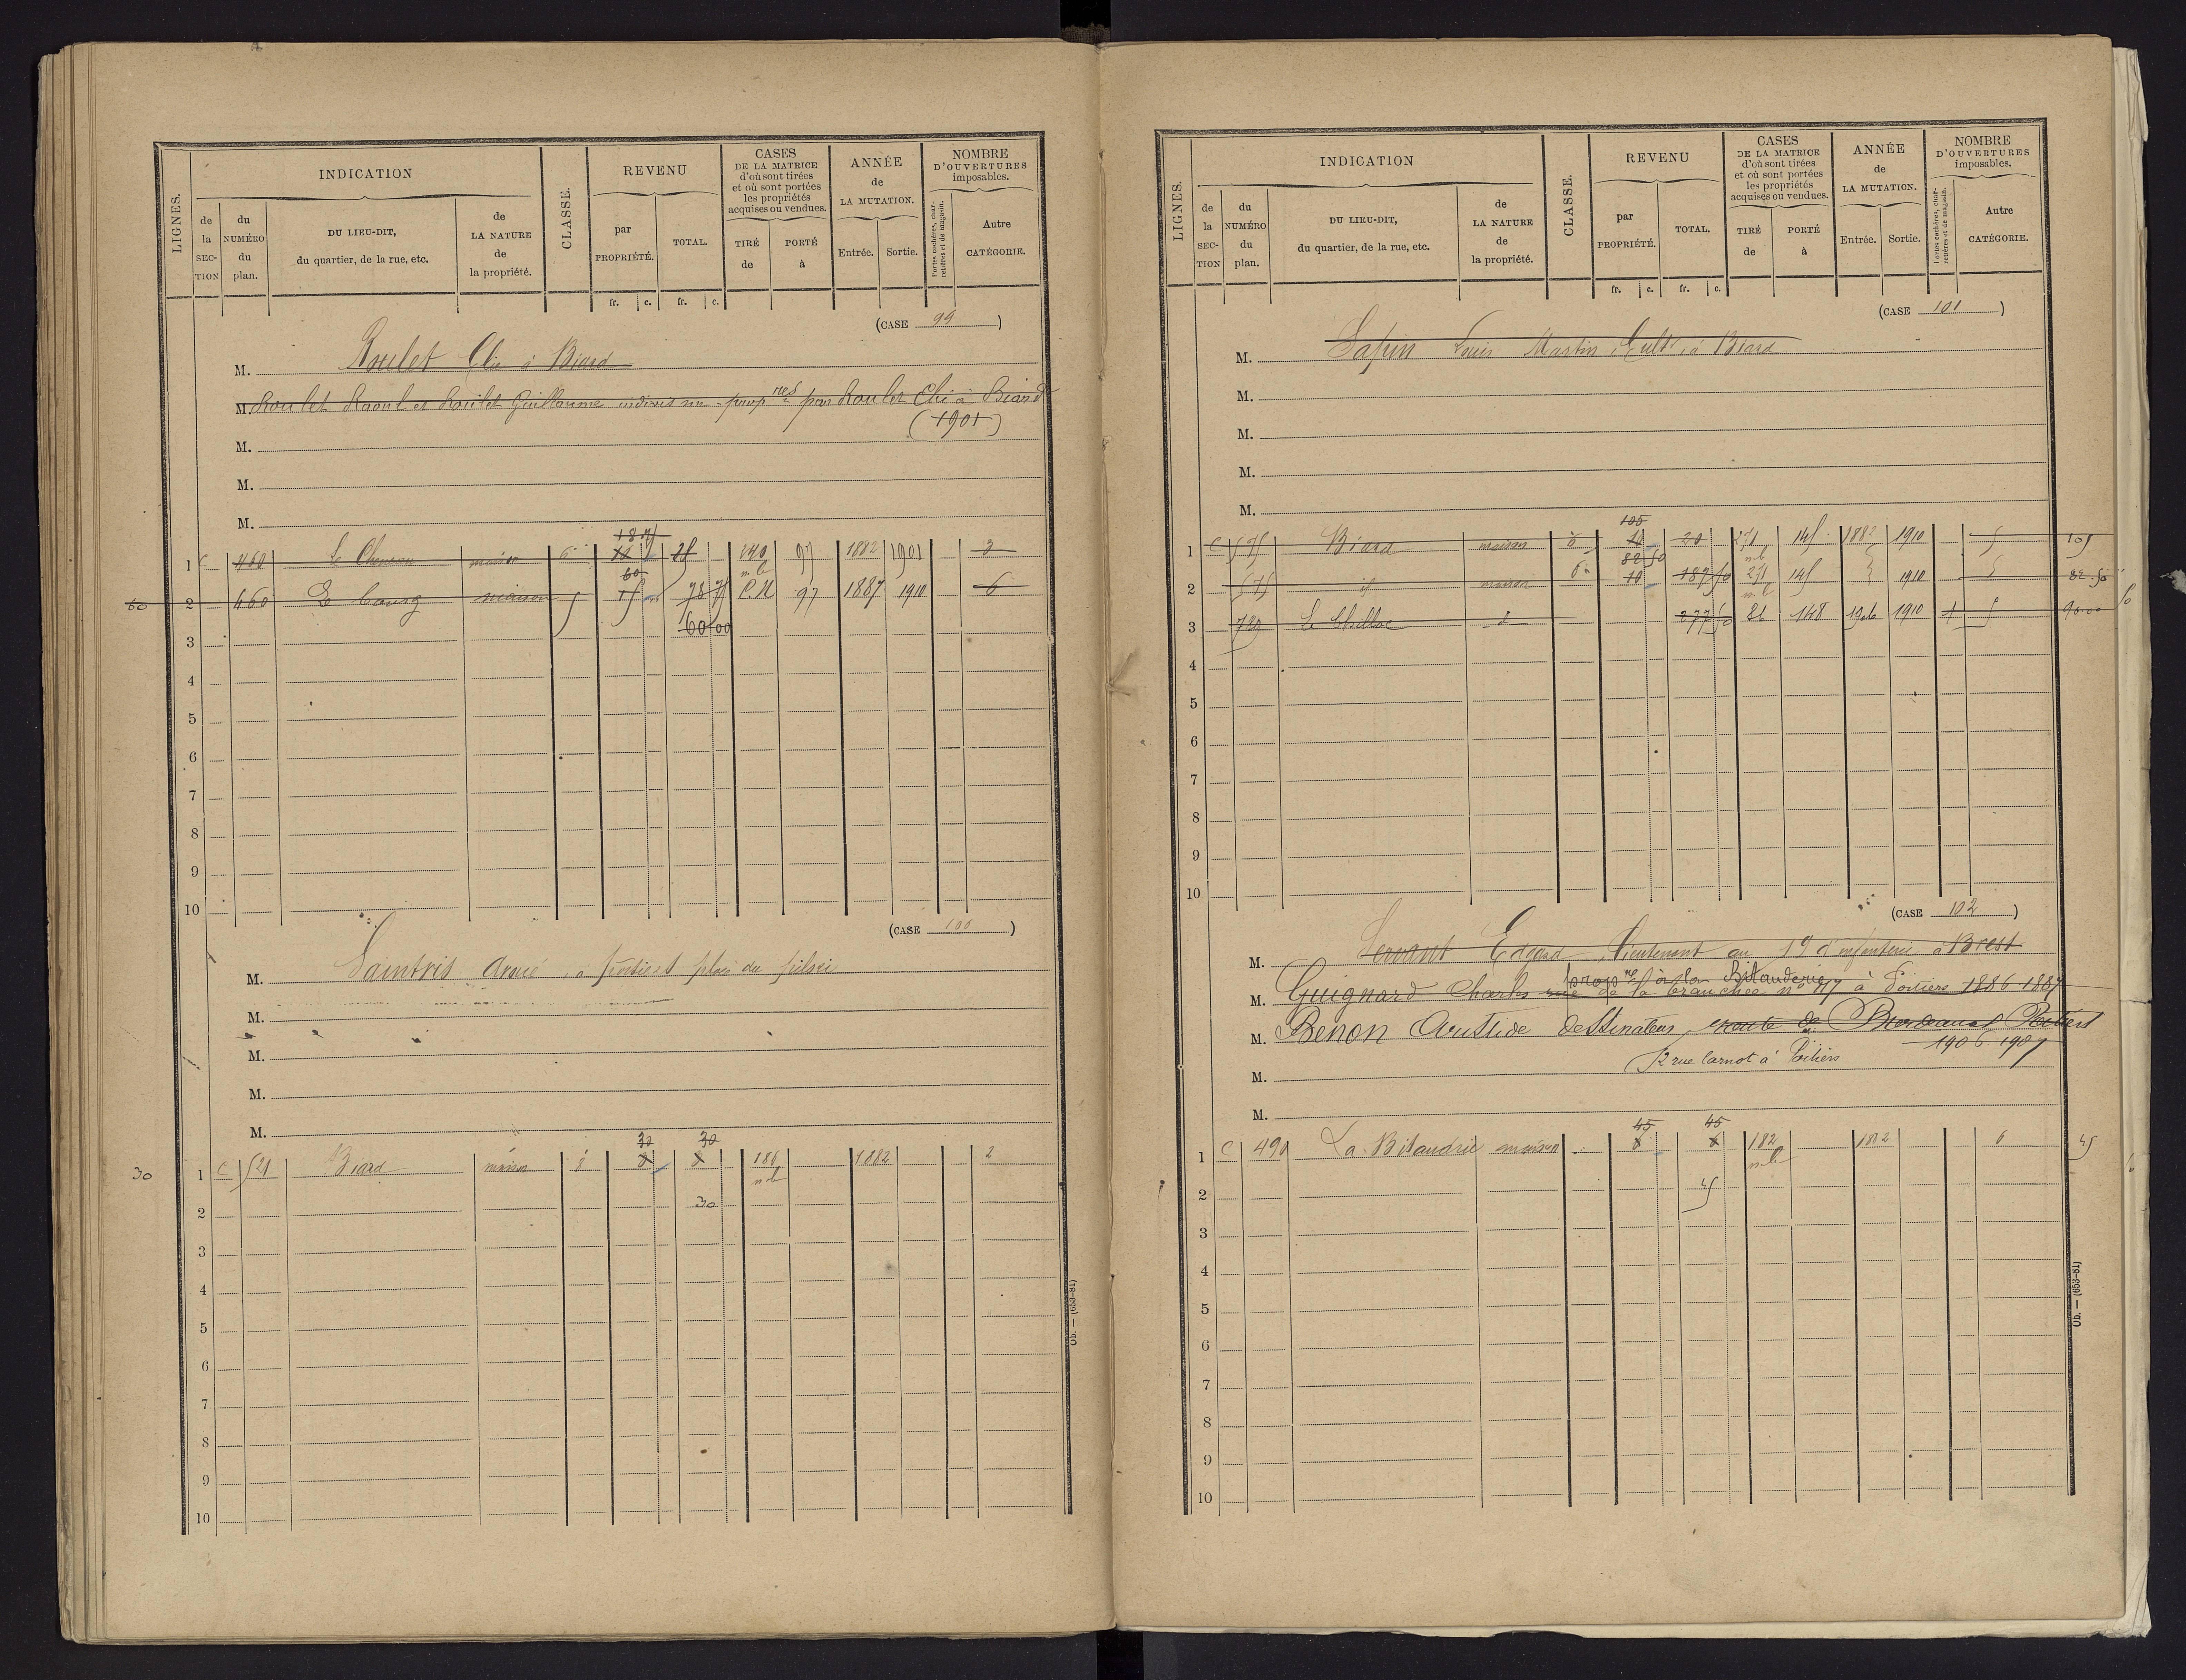 LIGNES.
INDICATION
CLASSE.
REVENU
CASES
DE LA MATRICE
d'où sont tirées
et où sont portées
les propriétés
acquises ou vendues.
ANNÉE
de
LA MUTATION.
NOMBRE
D'OUVERTURES
imposables.
de la SECTION
du NUMÉRO du plan.
DU LIEU-DIT,
du quartier, de la rue, etc.
de LA NATURE de la propriété.
par PROPRIÉTÉ.
TOTAL.
TIRÉ de
PORTÉ à
Entrée.
Sortie.
Portes cochères, charretières et de magasin.
Autre CATÉGORIE.
fr. c. fr. c.
(CASE 99)
M. Roulet Elie à Biard
M. Roulet Raoul et Roulet Guillaume par Roulet Elie à Biard
(1901)
M.
M.
M.
1 C 460 maison 140 97 1882 1901 3
60 2 460 Le bourg maison 78 75 C.N 97 1887 1910 6
3 60 00
4
5
6
7
8
9
10
(CASE 100)
M. à place du
M.
M.
M.
M.
30 30
30 1 C 521 Biard maison 8 186 1882 2
2 30
3
4
5
6
7
8
9
10
Ob. — (653-81)
LIGNES.
INDICATION
CLASSE.
REVENU
CASES
DE LA MATRICE
d'où sont tirées
et où sont portées
les propriétés
acquises ou vendues.
ANNÉE
de
LA MUTATION.
NOMBRE
D'OUVERTURES
imposables.
de la SECTION
du NUMÉRO du plan.
DU LIEU-DIT,
du quartier, de la rue, etc.
de LA NATURE de la propriété.
par PROPRIÉTÉ.
TOTAL.
TIRÉ de
PORTÉ à
Entrée.
Sortie.
Portes cochères, charretières et de magasin.
Autre CATÉGORIE.
fr. c. fr. c.
(CASE 101)
M. Sapin Louis Martin Cultr à Biard
M.
M.
M.
M.
105
1 C 575 Biard maison 20 271 145 1882 1910 5 105
82 50
2 575 id maison 10 187 50 271 145 1910 5 82.50
3 720 277 50 81 148 1906 1910 1 5 90.00
4
5
6
7
8
9
10
(CASE 102)
M. Servant Edgard Lieutenant au 19e d'infanterie à Brest
propre à la Bitauderie
M. Guignard Charles rue de la tranchée no 117 à Poitiers 1886-1887
M. Benon Aristide dessinateur, route de Bordeaux Poitiers
1906 1907
M. 12 rue Carnot à Poitiers
M.
45 45
1 C 490 La Bitaudrie maison 182 1882 6 45
2 45
3
4
5
6
7
8
9
10
Ob. — (653-81)